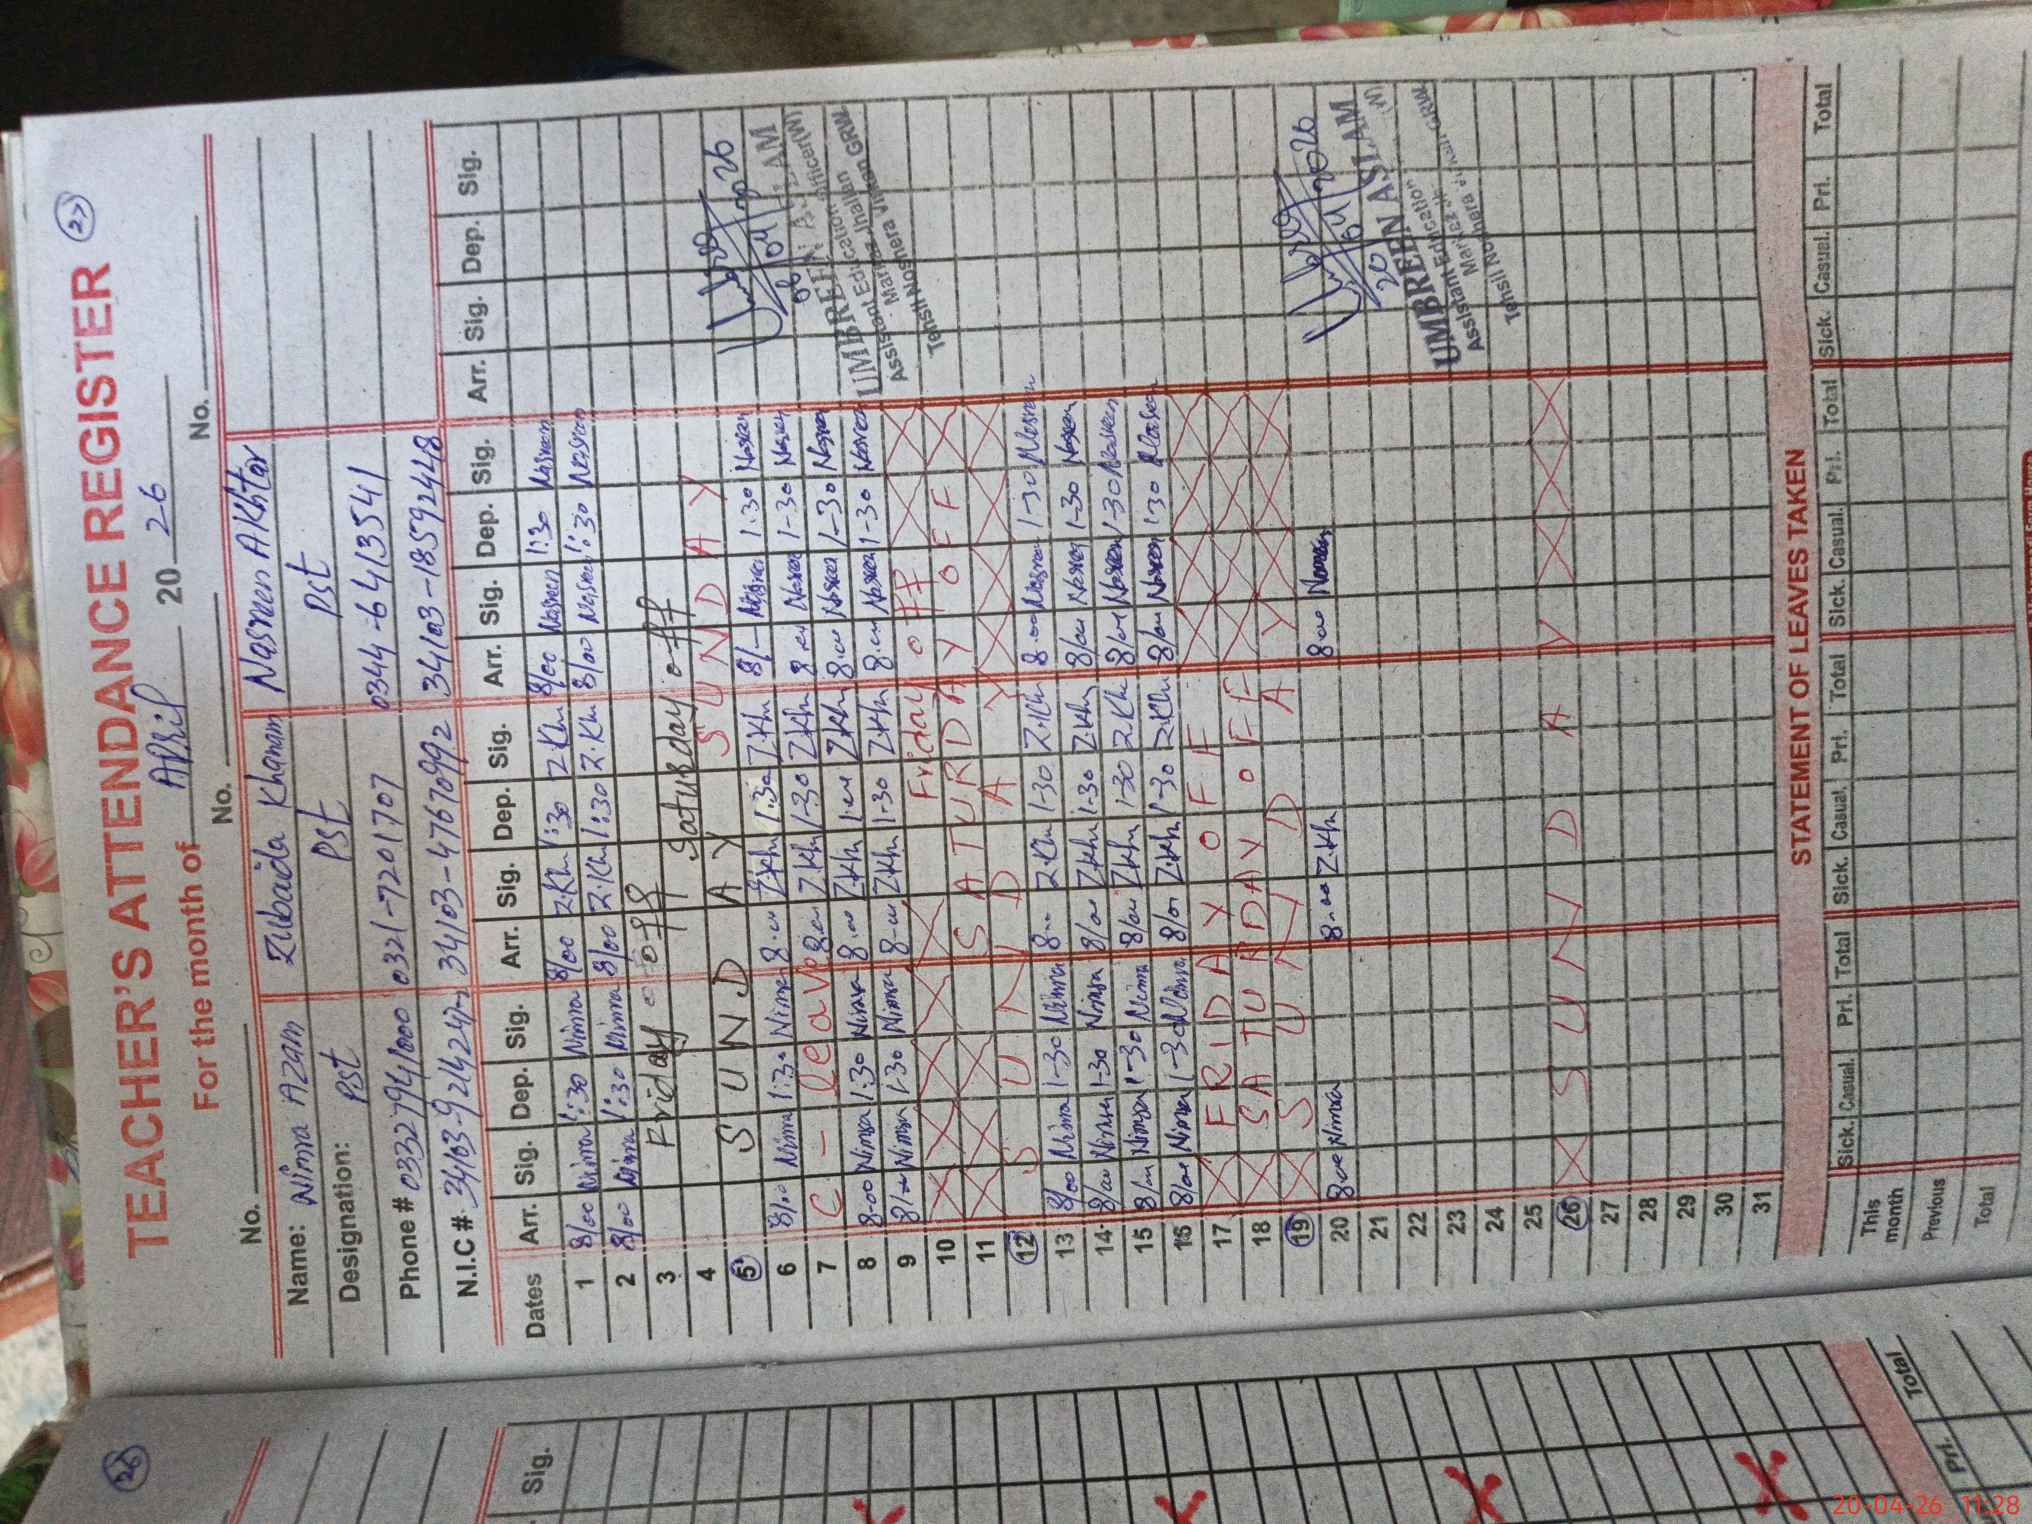 (27)
TEACHER'S ATTENDANCE REGISTER
For the month of April 20 26
No. No. No.
Name: Nimra Azam Zubaida Khanam Nasreen Akhtar
Designation: Pst Pst Pst
Phone # 03327941000 0321-7201707 0344-6413541
N.I.C #. 34103-47670992 34103-1859244-8
Dates Arr. Sig. Dep. Sig. Arr. Sig. Dep. Sig. Arr. Sig. Dep. Sig. Arr. Sig. Dep. Sig.
1 8/00 Nimra 1:30 Nimra 8/00 Z.Kh 1:30 Z.Kh 8/00 Nasreen 1:30 Nasreen
2 8/00 Nimra 1:30 Nimra 8/00 Z.Kh 1:30 Z.Kh 8/00 Nasreen 1:30 Nasreen
3 Friday off
4 Saturday off
5 SUNDAY SUNDAY
6 8/00 Nimra 1:30 Nimra 8.00 Z.Kh 1:30 Z.Kh 8/- Nasreen 1:30 Nasreen
7 C - leave 8.00 Z.Kh 1-30 Z.Kh 8.00 Nasreen 1-30 Nasreen
8 8-00 Nimra 1:30 Nimra 8.00 Z.Kh Z.Kh 8.00 Nasreen 1-30 Nasreen
9 8/00 Nimra 1:30 Nimra 8-00 Z.Kh 1-30 Z.Kh 8.00 Nasreen 1-30 Nasreen
10 Friday off
11 SATURDAY OFF
12 SUNDAY
13 8/00 Nimra 1-30 Nimra 8.. Z.Kh 1-30 Z.Kh 8.00 Nasreen 1-30 Nasreen
14 8/00 Nimra 1-30 Nimra 8/00 Z.Kh 1-30 Z.Kh 8/00 Nasreen 1-30 Nasreen
15 8/00 Nimra 1-30 Nimra 8/00 Z.Kh 1-30 Z.Kh 8/00 Nasreen 1-30 Nasreen
16 8/00 Nimra 1-30 Nimra 8/00 Z.Kh 1-30 Z.Kh 8/00 Nasreen 1-30 Nasreen
17 FRIDAY OFF
18 SATURDAY OFF
19 SUNDAY
20 8.00 Nimra 8-00 Z.Kh 8.00 Nasreen
21
22
23
24
25
26 SUNDAY
27
28
29
30
31
08/04/2026
UMBREEN ASLAM
Assistant Education Officer(W)
Markaz Jhallan
Tehsil Noshera Virkan GRW
20/04/2026
UMBREEN ASLAM
Assistant Education (W)
Markaz
Tehsil Noshera Virkan GRW
STATEMENT OF LEAVES TAKEN
Sick. Casual. Pri. Total Sick. Casual. Pri. Total Sick. Casual. Pri. Total Sick. Casual. Pri. Total
This month
Previous
Total
(26)
Sig.
Pri. Total
20-04-26 11:28